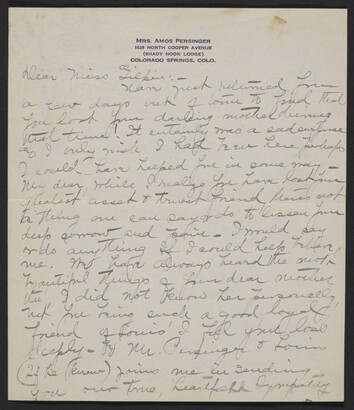 MRS. AMOS PERSINGER
1528 NORTH COOPER AVENUE
(SHADY NOOK LODGE)
COLORADO SPRINGS, COLO.
Dear Miss Gilpin:-
Have just returned from
a few days out of town to find that
you lost your darling mother during
that time! It certainly was a sad
I only wish I had been here perhaps
I could have helped you in some way -
My dear, while I realize you have lost your
greatest asset & truest friend, there's not
a thing one can say or do to lessen your
deep sorrow and pain - I would say
or do anything if I could help believe
me. We have always heard the most
beautiful things of your dear mother
tho' I did not know her personally
but you being such a good loyal
friend of Louis' I feel your loss
deeply - Mr. Persinger & Louis
(if he knew) joins me in sending
you our true, heartfelt sympathy